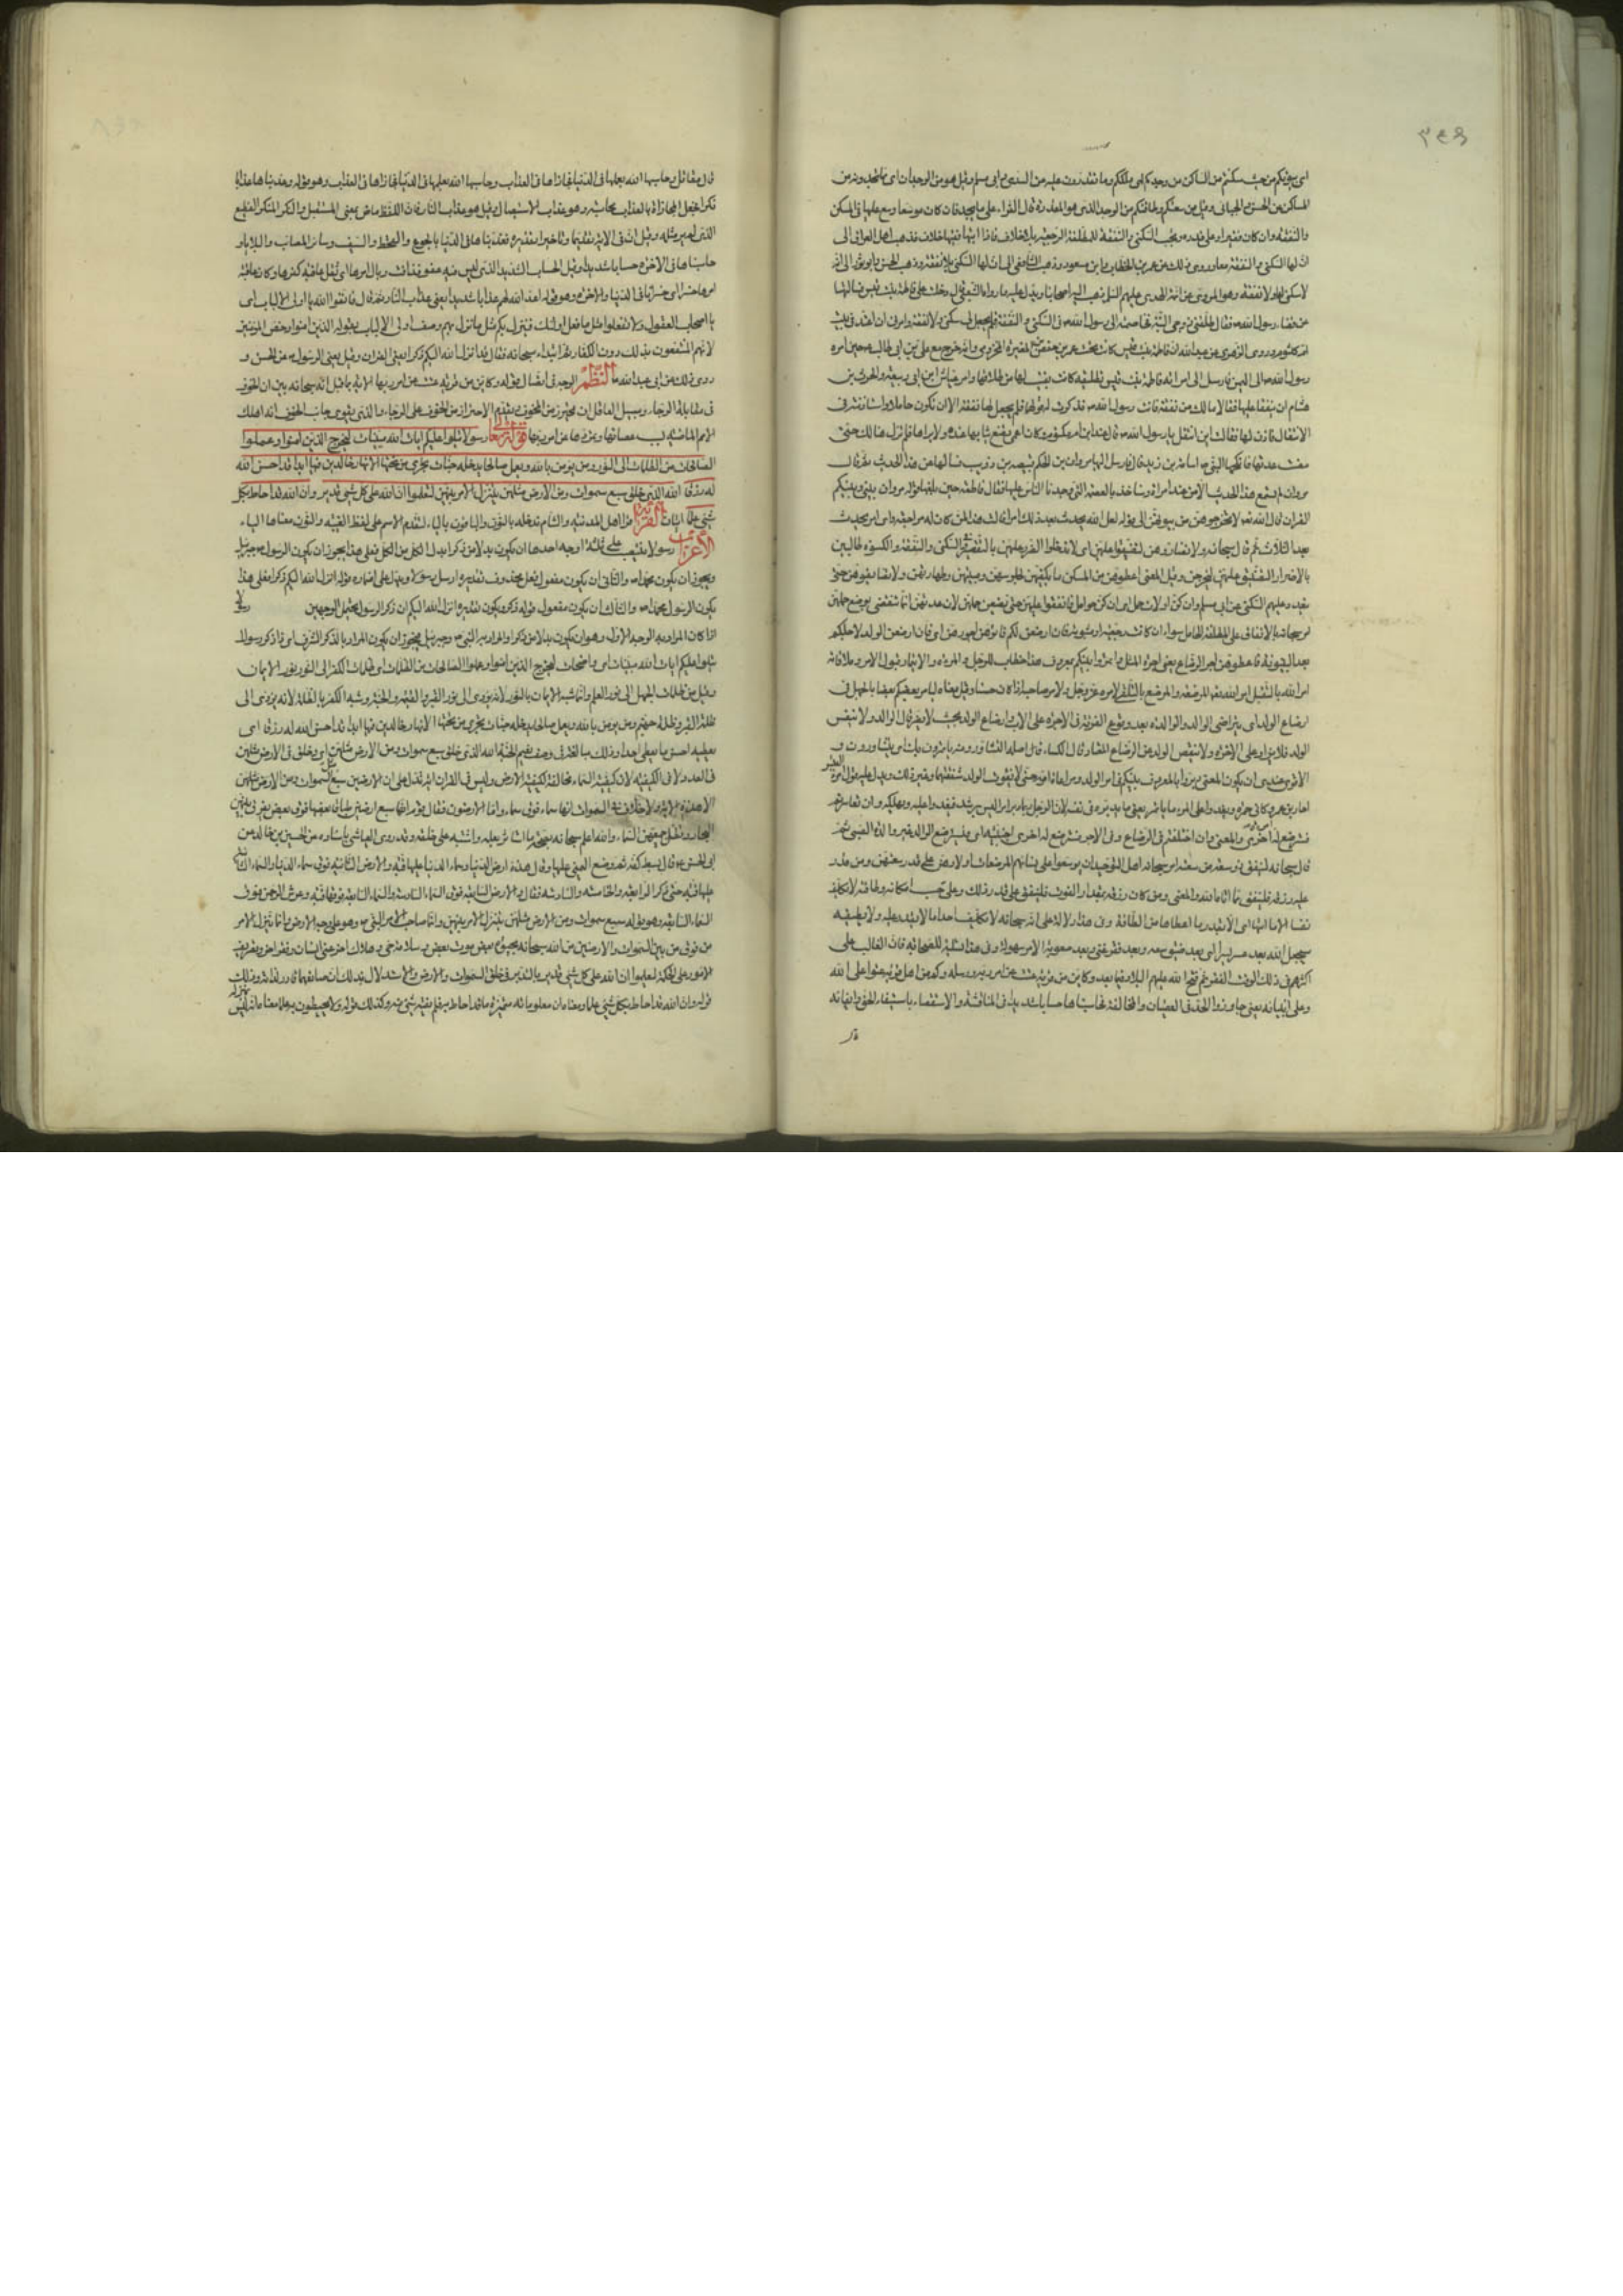 ٣٤٩
اى بيوتكم من حيث سكنتم من المساكن من وجدكم اى ملككم وما تقدرون عليه عن السدى وابى مسلم وقيل هو من الوجدان اى مما تجدونه من
المساكن عن الحسن والجبائى وقيل من سعتكم وطاقتكم من الوجد الذى هو المقدرة قال الفراء على ما يجد فان كان موسعا وسع عليها فى المسكن
والنفقة وان كان فقيرا فعلى قدره ويجب السكنى والنفقة للمطلقة الرجعية بلا خلاف فاما المبتوتة ففيها خلاف فذهب اهل العراق الى
ان لها السكنى والنفقة معا وروى ذلك عن عمر بن الخطاب وابن مسعود وذهب الشافعى الى ان لها السكنى بلا نفقة وذهب الحسن وابو ثور الى انه
لا سكنى لها ولا نفقة وهو المروى عن ائمة الهدى عليهم السلم وذهب اليه اصحابنا ويدل عليه ما رواه الشعبى قال دخلت على فاطمة بنت قيس فسالتها
عن قضاء رسول الله ص فقالت طلقنى زوجى البتة فخاصمته الى رسول الله ص فى السكنى والنفقة فلم يجعل لى سكنى ولا نفقة وامرنى ان اعتد فى بيت
ابن ام مكتوم وروى الزهرى عن عبيد الله ان فاطمة بنت قيس كانت تحت عمرو بن حفص بن المغيرة المخزومى وانه خرج مع على بن ابى طالب ع حين امره
رسول الله ص الى اليمن فارسل الى امراته فاطمة بنت قيس بتطليقة كانت بقيت لها من طلاقها وامر عياش ابن ابى ربيعة والحرث بن
هشام ان ينفقا عليها فقالا ما لك من نفقة فاتت رسول الله ص فذكرت له قولهما فلم يجعل لها نفقة الا ان تكون حاملا واستاذنته فى
الانتقال فاذن لها فقالت اين انتقل يا رسول الله ص قال عند ابن ام مكتوم وكان اعمى تضع ثيابها عنده ولا يراها فلم تزل هنالك حتى
مضت عدتها فانكحها النبى ص اسامة بن زيد قال فارسل اليها مروان بن الحكم قبيصة بن ذويب فسالها عن هذا الحديث ثم قال
مروان لم نسمع هذا الحديث الا من عند امراة وسناخذ بالعصمة التى وجدنا الناس عليها فقالت فاطمة حين بلغها قول مروان بينى وبينكم
القران قال الله تعالى لا تخرجوهن من بيوتهن الى قوله لعل الله يحدث بعد ذلك امرا قالت هذا لمن كانت له مراجعة واى امر يحدث
بعد الثلاث ثم قال سبحانه ولا تضاروهن لتضيقوا عليهن اى لا تدخلوا الضرر عليهن بالتقصير فى السكنى والنفقة والكسوة طالبين
بالاضرار التضييق عليهن ليخرجن وقيل المعنى اعطوهن من المسكن ما يكفيهن لجلوسهن ومبيتهن وطهارتهن ولا تضايقوهن حتى
يتعذر عليهم السكنى عن ابى مسلم وان كن اولات حمل اى ان كن حوامل فانفقوا عليهن حتى يضعن حملهن لان عدتهن انما تنقضى بوضع حملهن
امر سبحانه بالانفاق على المطلقة الحامل سواء ان كانت رجعية او مبتوتة فان ارضعن لكم فاتوهن اجورهن اى فان ارضعن الولد لاجلكم
بعد البينونة فاعطوهن اجر الرضاع يعنى اجرة المثل وائتمروا بينكم بمعروف هذا خطاب للرجل والمراة والائتمار قبول الامر وملاقاته
ارضاع الولد اى بتراضى الوالد والوالدة بعد وقوع الفرقة فى الاجرة على الاب وارضاع الولد بحيث لا يضر بمال الوالد ولا بنفس
الولد فلا يزاد على الاجرة ولا ينقص الولد عن الرضاع المعتاد قال الكسائى قال اصله التشاور ومنه ياتمرون بك اى يتشاورون
فسترضع له اخرى والمعنى وان اختلفتم فى الرضاع وفى الاجر فسترضع له اخرى اجنبية اى فليسترضع الوالد غير والدة الصبى ثم
قال سبحانه لينفق ذو سعة من سعته امر سبحانه اهل التوسعة ان يوسعوا على نسائهم المرضعات اولادهن على قدر سعتهم ومن قدر
عليه رزقه فلينفق مما اتاه الله والمعنى ومن كان رزقه بمقدار القوت فلينفق على قدر ذلك وعلى حسب امكانه وطاقته لا يكلف
نفسا الا ما اتاها اى الا بقدر ما اعطاها من الطاقة وفى هذا دلالة على انه سبحانه لا يكلف احدا ما لا يقدر عليه ولا يطيقه
سيجعل الله بعد عسر يسرا اى بعد ضيق سعة وبعد فقر غنى وبعد صعوبة الامر سهولة وفى هذا تسلية للصحابة فان الغالب على
اكثرهم فى ذلك الوقت الفقر ثم فتح الله عليهم البلاد فيما بعد وكاين من قرية عتت عن امر ربها ورسله وكم من اهل قرية عتوا على الله
وعلى انبيائه يعنى جاوزوا الحد فى العصيان والمخالفة فحاسبناها حسابا شديدا فى المناقشة والاستقصاء باستيفاء الحق وايفائه
قال
قال مقاتل وحاسبها الله بعملها فى الدنيا فجازاها فى العذاب وحاسبها الله بعملها فى الدنيا فجازاها فى العذاب وهو قوله وعذبناها عذابا
نكرا فجعل المجازاة بالعذاب محاسبة وهو عذاب الاستيصال وقيل هو عذاب النار فان اللفظ ماض بمعنى المستقبل والنكر المنكر الفظيع
الذى لم ير مثله وقيل ان فى الاية تقديما وتاخيرا تقديره فعذبناها فى الدنيا بالجوع والقحط والسيف وساير المصائب والبلايا و
حاسبناها فى الاخرة حسابا شديدا وقيل الحساب الشديد الذى ليس فيه عفو فذاقت وبال امرها اى ثقل عاقبة كفرها وكان عاقبة
امرها خسرا اى خسرانا فى الدنيا والاخرة وهو قوله اعد الله لهم عذابا شديدا يعنى عذاب النار ثم قال فاتقوا الله يا اولى الالباب اى
يا اصحاب العقول ولا تفعلوا مثل ما فعل اولئك فينزل بكم مثل ما نزل بهم ووصف اولى الالباب بقوله الذين امنوا وخص المؤمنين
لانهم المنتفعون بذلك دون الكفار ثم ابتداء سبحانه فقال قد انزل الله اليكم ذكرا يعنى القران وقيل يعنى الرسول ص عن الحسن و
روى ذلك عن ابى عبد الله ع النظم الوجه فى اتصال قوله وكاين من قرية عتت عن امر ربها الاية بما قبل انه سبحانه بين ان الخوف
فى مقابلة الرجاء وسبيل العاقل ان يحترز من المخوف بتقديم الاحتراز من الخوف على الرجاء والذى يقوى جانب الخوف انه اهلك
الامم الماضية بسبب عصيانها وتمردها عن امر ربها قوله تعالى رسولا يتلوا عليكم ايات الله مبينات ليخرج الذين امنوا وعملوا
الصالحات من الظلمات الى النور ومن يؤمن بالله ويعمل صالحا يدخله جنات تجرى من تحتها الانهار خالدين فيها ابدا قد احسن الله
له رزقا الله الذى خلق سبع سموات ومن الارض مثلهن يتنزل الامر بينهن لتعلموا ان الله على كل شىء قدير وان الله قد احاط بكل
شىء علما ايتان القراءة قرا اهل المدينة والشام ندخله بالنون والباقون بالياء لتقدم الاسم على لفظ الغيبة والنون معناها الياء
الاعراب رسولا ينتصب على ثلثة اوجه احدها ان يكون بدلا من ذكرا بدل الكل من الكل فعلى هذا يجوز ان يكون الرسول جبرئيل
ويجوز ان يكون محمدا ص والثانى ان يكون مفعول فعل محذوف تقديره ارسل رسولا ويدل على اضماره قوله انزل الله اليكم ذكرا فعلى هذا
يكون الرسول محمدا ص والثالث ان يكون مفعول قوله ذكرا ويكون تقديره انزل الله اليكم ان ذكر الرسول يحتمل الوجهين
يتلوا عليكم ايات الله مبينات اى واضحات ليخرج الذين امنوا وعملوا الصالحات من الظلمات من ظلمات الكفر الى النور نور الايمان
وقيل من ظلمات الجهل الى نور العلم وانما شبه الايمان بالنور لانه يؤدى الى نور القبر والقيمة والجنة وشبه الكفر بالظلمة لانه يؤدى الى
ظلمة القبر وظلمة جهنم ومن يؤمن بالله ويعمل صالحا يدخله جنات تجرى من تحتها الانهار خالدين فيها ابدا قد احسن الله له رزقا اى
يعطيه احسن ما يعطى احدا وذلك مبالغة فى وصف نعيم الجنة الله الذى خلق سبع سموات ومن الارض مثلهن اى وخلق من الارض مثلهن
فى العدد لا فى الكيفية لان كيفية السماء مخالفة لكيفية الارض وليس فى القران اية تدل على ان الارضين سبع مثل السموات
الا هذه الاية ولا خلاف فى السموات انها سماء فوق سماء واما الارضون فقال قوم انها سبع ارضين طباقا بعضها فوق بعض
ابى الحسن ع قال بسط كفه ثم وضع اليمنى عليها وقال هذه ارض الدنيا وسماء الدنيا عليها قبة والارض الثانية فوق سماء الدنيا والسماء الثانية
عليها قبة حتى ذكر الرابعة والخامسة والسادسة فقال والارض السابعة فوق السماء السادسة والسماء السابعة فوقها قبة وعرش الرحمن فوق
السماء السابعة وهو قوله سبع سموات ومن الارض مثلهن يتنزل الامر بينهن وانما صاحب الامر النبى ص وهو على وجه الارض وانما يتنزل الامر
من فوق من بين السموات والارضين
الامور على الحكمة لتعلموا ان الله على كل شىء قدير بالتدبير فى خلق السموات والارض والاستدلال بذلك ان صانعهما قادر لذاته وذلك
قوله وان الله قد احاط بكل شىء علما ومعناه ان معلوماته متميزة له